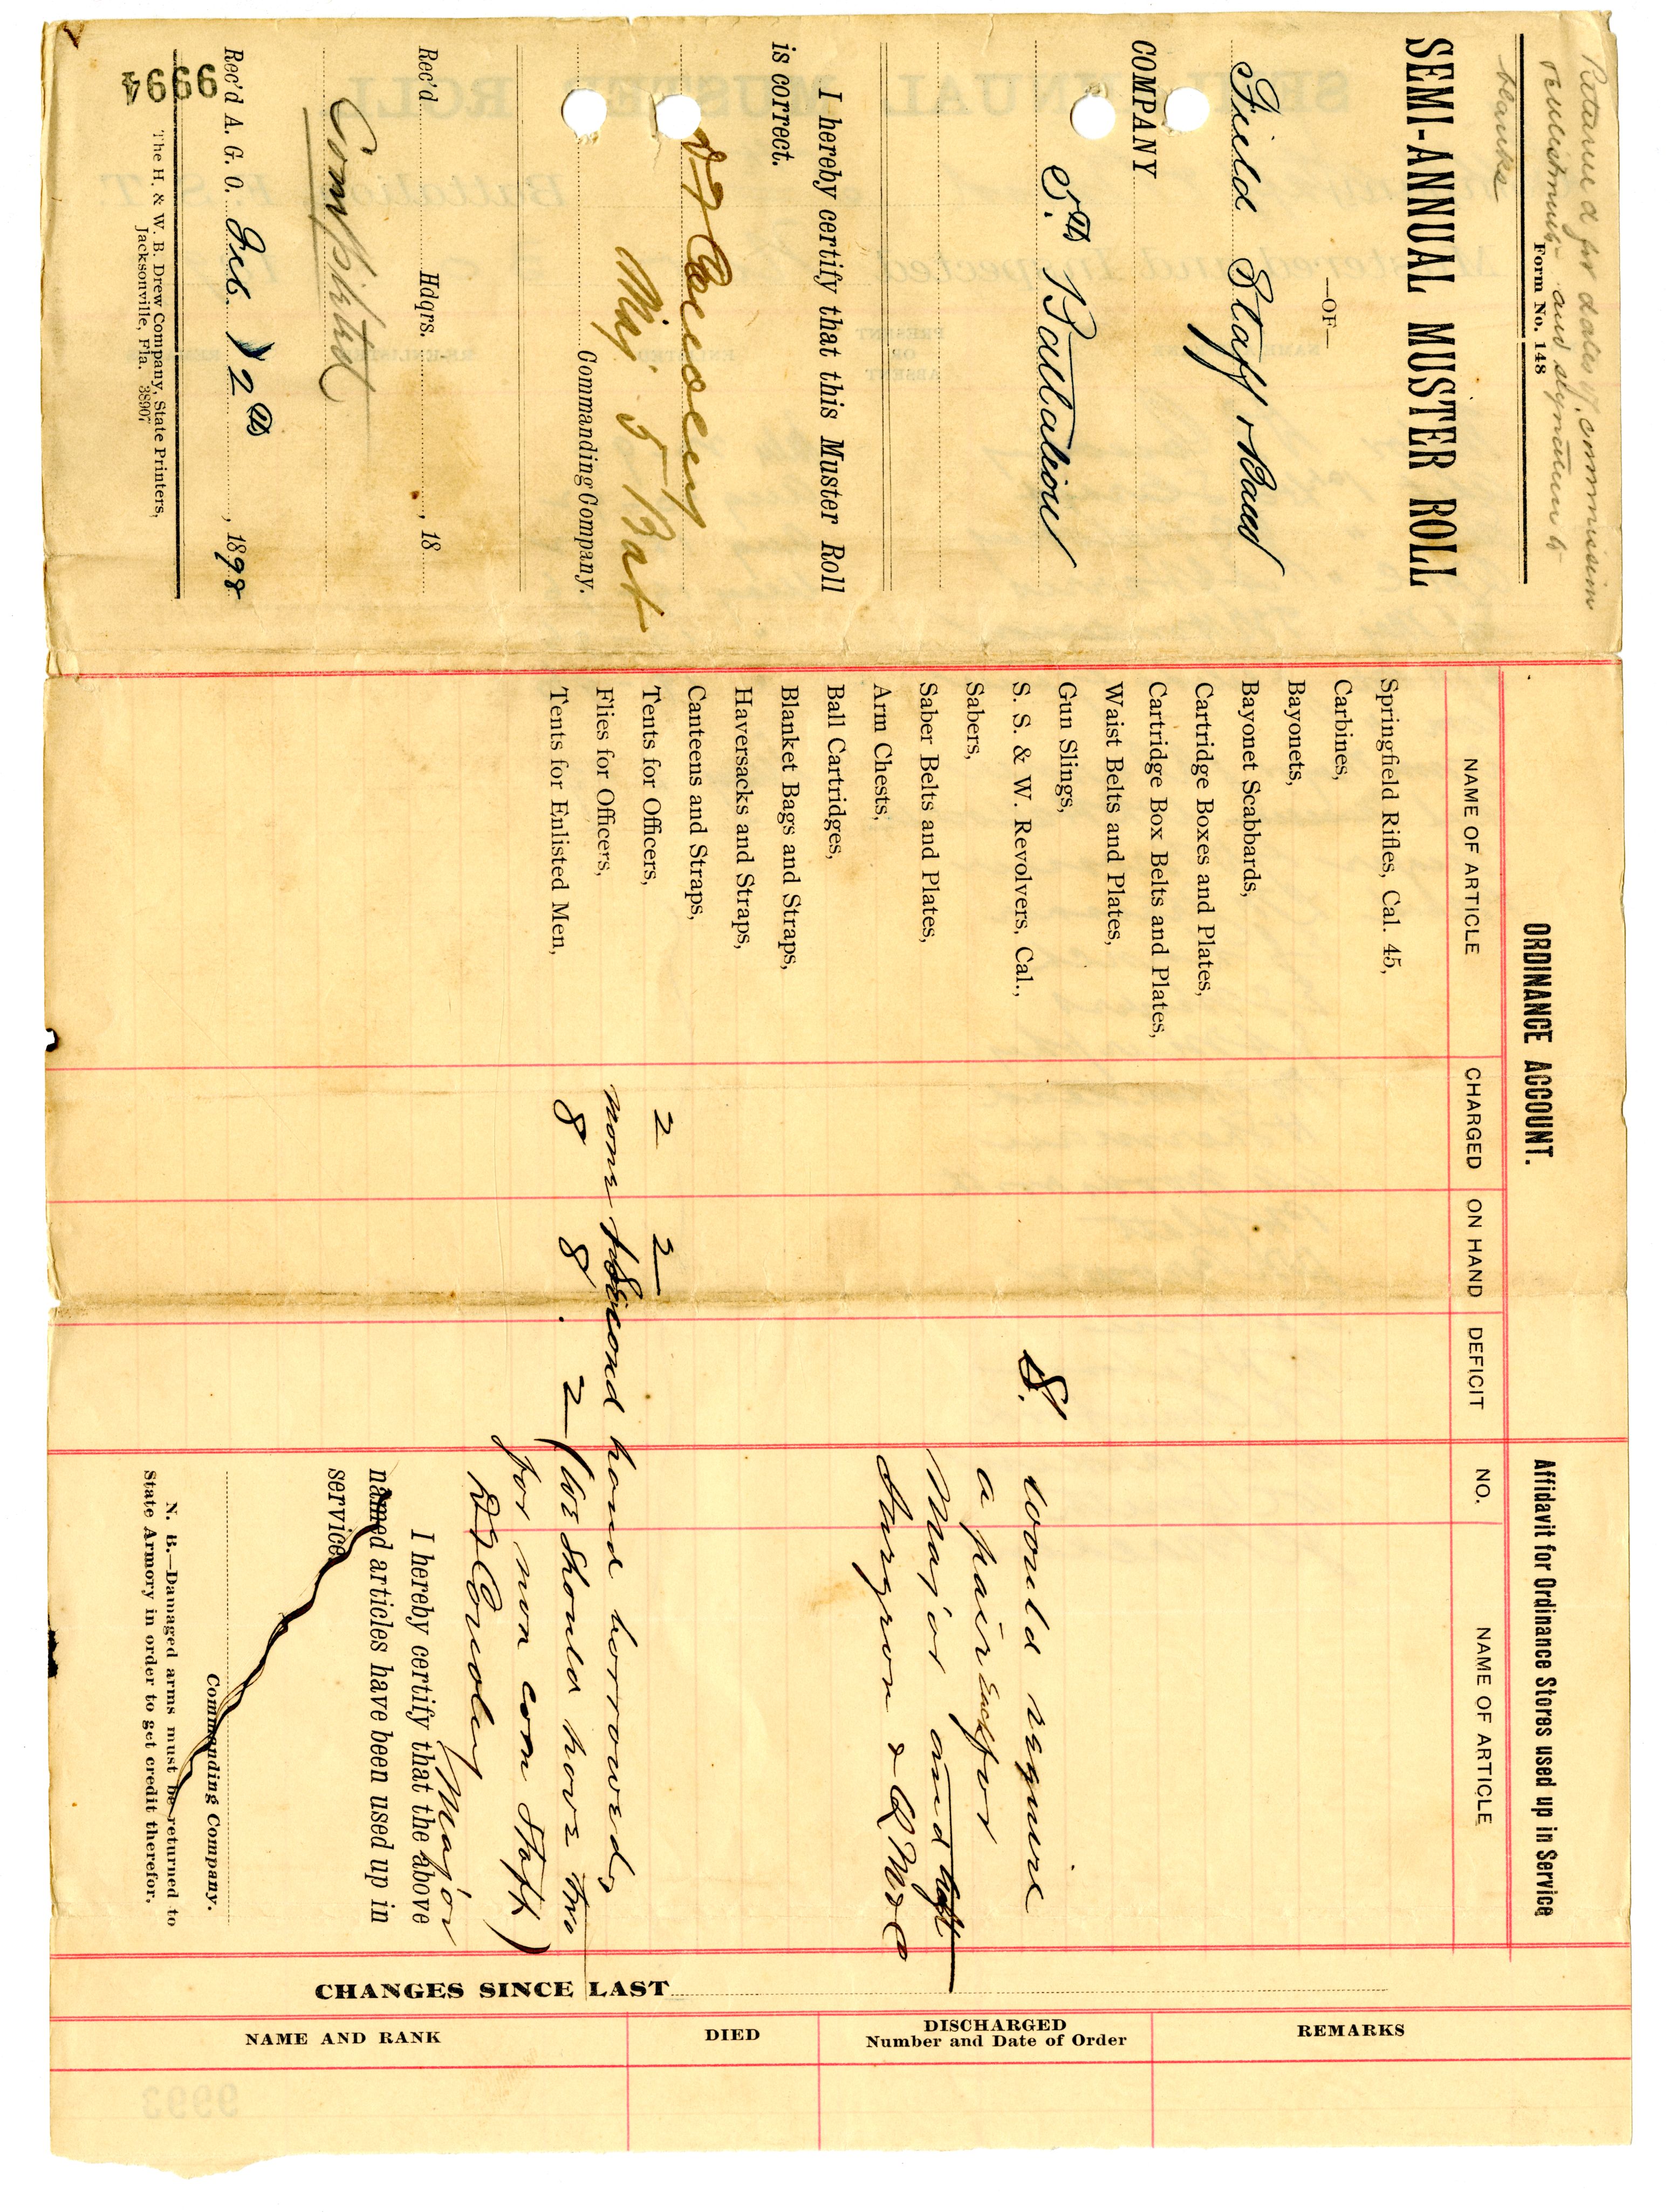 Returned for dates of commission
reenlistments and signature to
blanks
Form No. 148
SEMI-ANNUAL MUSTER ROLL
—OF—
Field Staff & Band
COMPANY
5th Battalion
I hereby certify that this Muster Roll
is correct.
Maj. 5 Bat
Commanding Company.
Rec'd Hdqrs. , 18
Completed
Rec'd A. G. O. Feb 12th , 1898
The H. & W. B. Drew Company, State Printers,
Jacksonville, Fla. 38907
9994
ORDINANCE ACCOUNT.
NAME OF ARTICLE CHARGED ON HAND DEFICIT
Springfield Rifles, Cal. 45,
Carbines,
Bayonets,
Bayonet Scabbards,
Cartridge Boxes and Plates,
Cartridge Box Belts and Plates,
Waist Belts and Plates,
Gun Slings,
S. S. & W. Revolvers, Cal., 8. would require
Sabers, a pair Each for
Saber Belts and Plates, Major and
Arm Chests, Surgeon &
Ball Cartridges,
Blanket Bags and Straps,
Haversacks and Straps,
Canteens and Straps,
Tents for Officers, 2 2
Flies for Officers, none Second hand borrowed
Tents for Enlisted Men, 8 8. 2 (We Should have two
for non com Staff)
Major
Affidavit for Ordinance Stores used up in Service
NO. NAME OF ARTICLE
I hereby certify that the above
named articles have been used up in
service.
Commanding Company.
N. B.—Damaged arms must be returned to
State Armory in order to get credit therefor.
CHANGES SINCE LAST
NAME AND RANK DIED DISCHARGED REMARKS
Number and Date of Order
9993